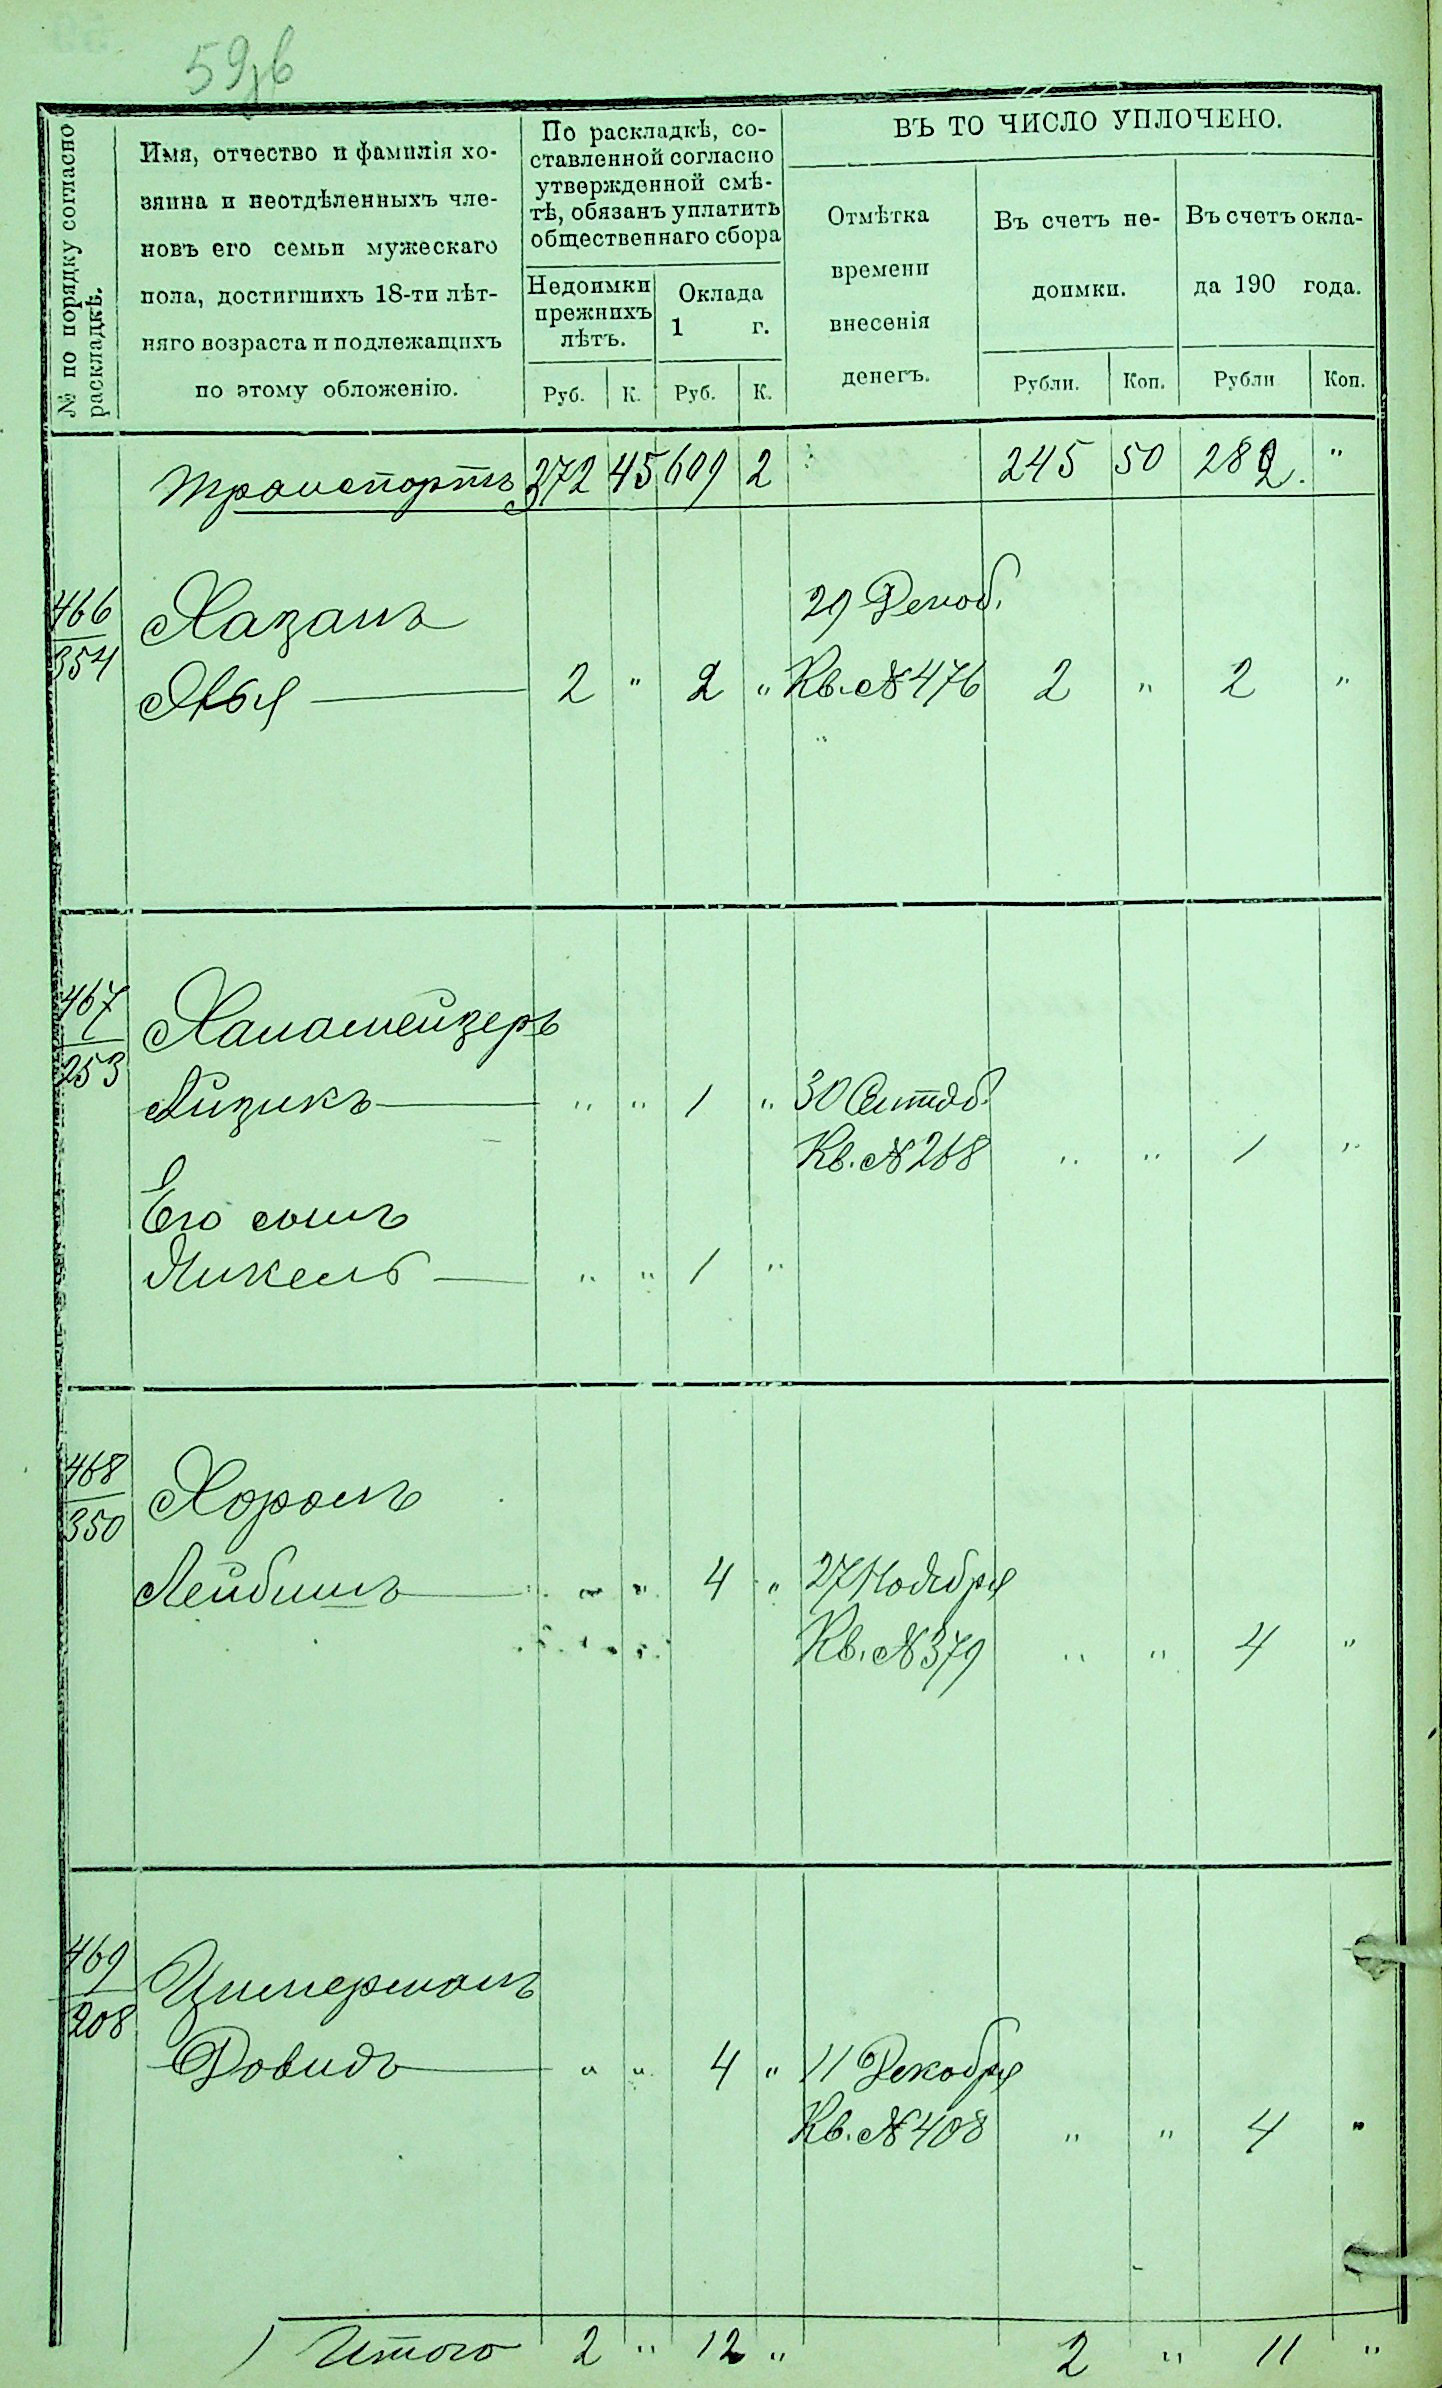 59об
№ по порядку согласно
раскладкѣ.
Имя, отчество и фамилія хо-
зяина и неотдѣленныхъ чле-
новъ его семьи мужескаго
пола, достигшихъ 18-ти лѣт-
няго возраста и подлежащихъ
по этому обложенію.
По раскладкѣ, со-
ставленной согласно
утвержденной смѣ-
тѣ, обязанъ уплатить
общественнаго сбора
Недоимки
прежнихъ
лѣтъ.
Оклада
1 г.
Руб. К. Руб. К.
ВЪ ТО ЧИСЛО УПЛОЧЕНО.
Отмѣтка
времени
внесенія
денегъ.
Въ счетъ не-
доимки.
Рубли. Коп.
Въ счетъ окла-
да 190 года.
Рубли Коп.
Транспортъ 372 45 609 2 245 50 282. "
466
354
Хазанъ 29 Декаб.
Авья 2 " 2 " Кв. № 476 2 " 2 "
467
253
Халамейзеръ
Айзикъ " " 1 " 30 Сентяб.
Кв. № 268 " " 1 "
Его сынъ
Янкель " " 1 "
468
350
Хоромъ
Лейбишъ " " 4 " 27 Ноября
Кв. № 379 " " 4 "
469
208
Цимерманъ
Довидъ " " 4 " 11 Декабря
Кв. № 408 " " 4 "
Итого 2 " 12 " 2 " 11 "